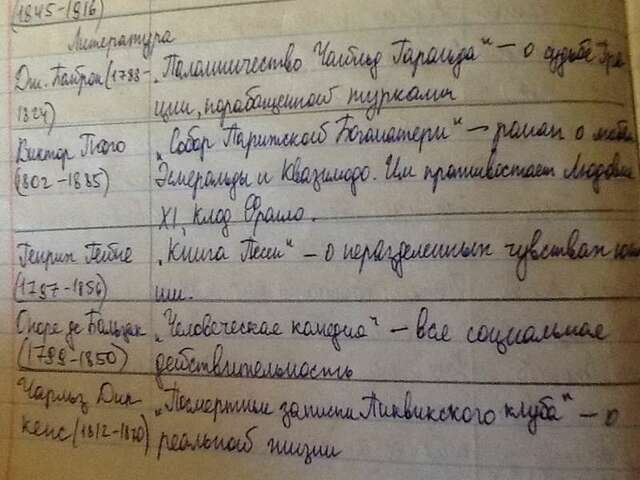 (1845-1916)
Литература
Дж. Байрон (1788-
1824)
„Паломничество Чайльд Гарольда“ – о судьбе Гре
ции, порабощенной турками
Виктор Гюго
(1802-1885)
„Собор Парижской Богоматери“ – роман о любви
Эсмеральды и Квазимодо. Им противостает Людовик
XI, Клод Фролло.
Генрих Гейне
(1797-1856)
„Книга Песен“ – о неразделенных чувствах
Оноре де Бальзак
(1799-1850)
„Человеческая комедия“ – вся социальная
действительность
Чарльз Дик
кенс (1812-1870)
„Посмертные записки Пиквикского клуба“ – о
реальной жизни